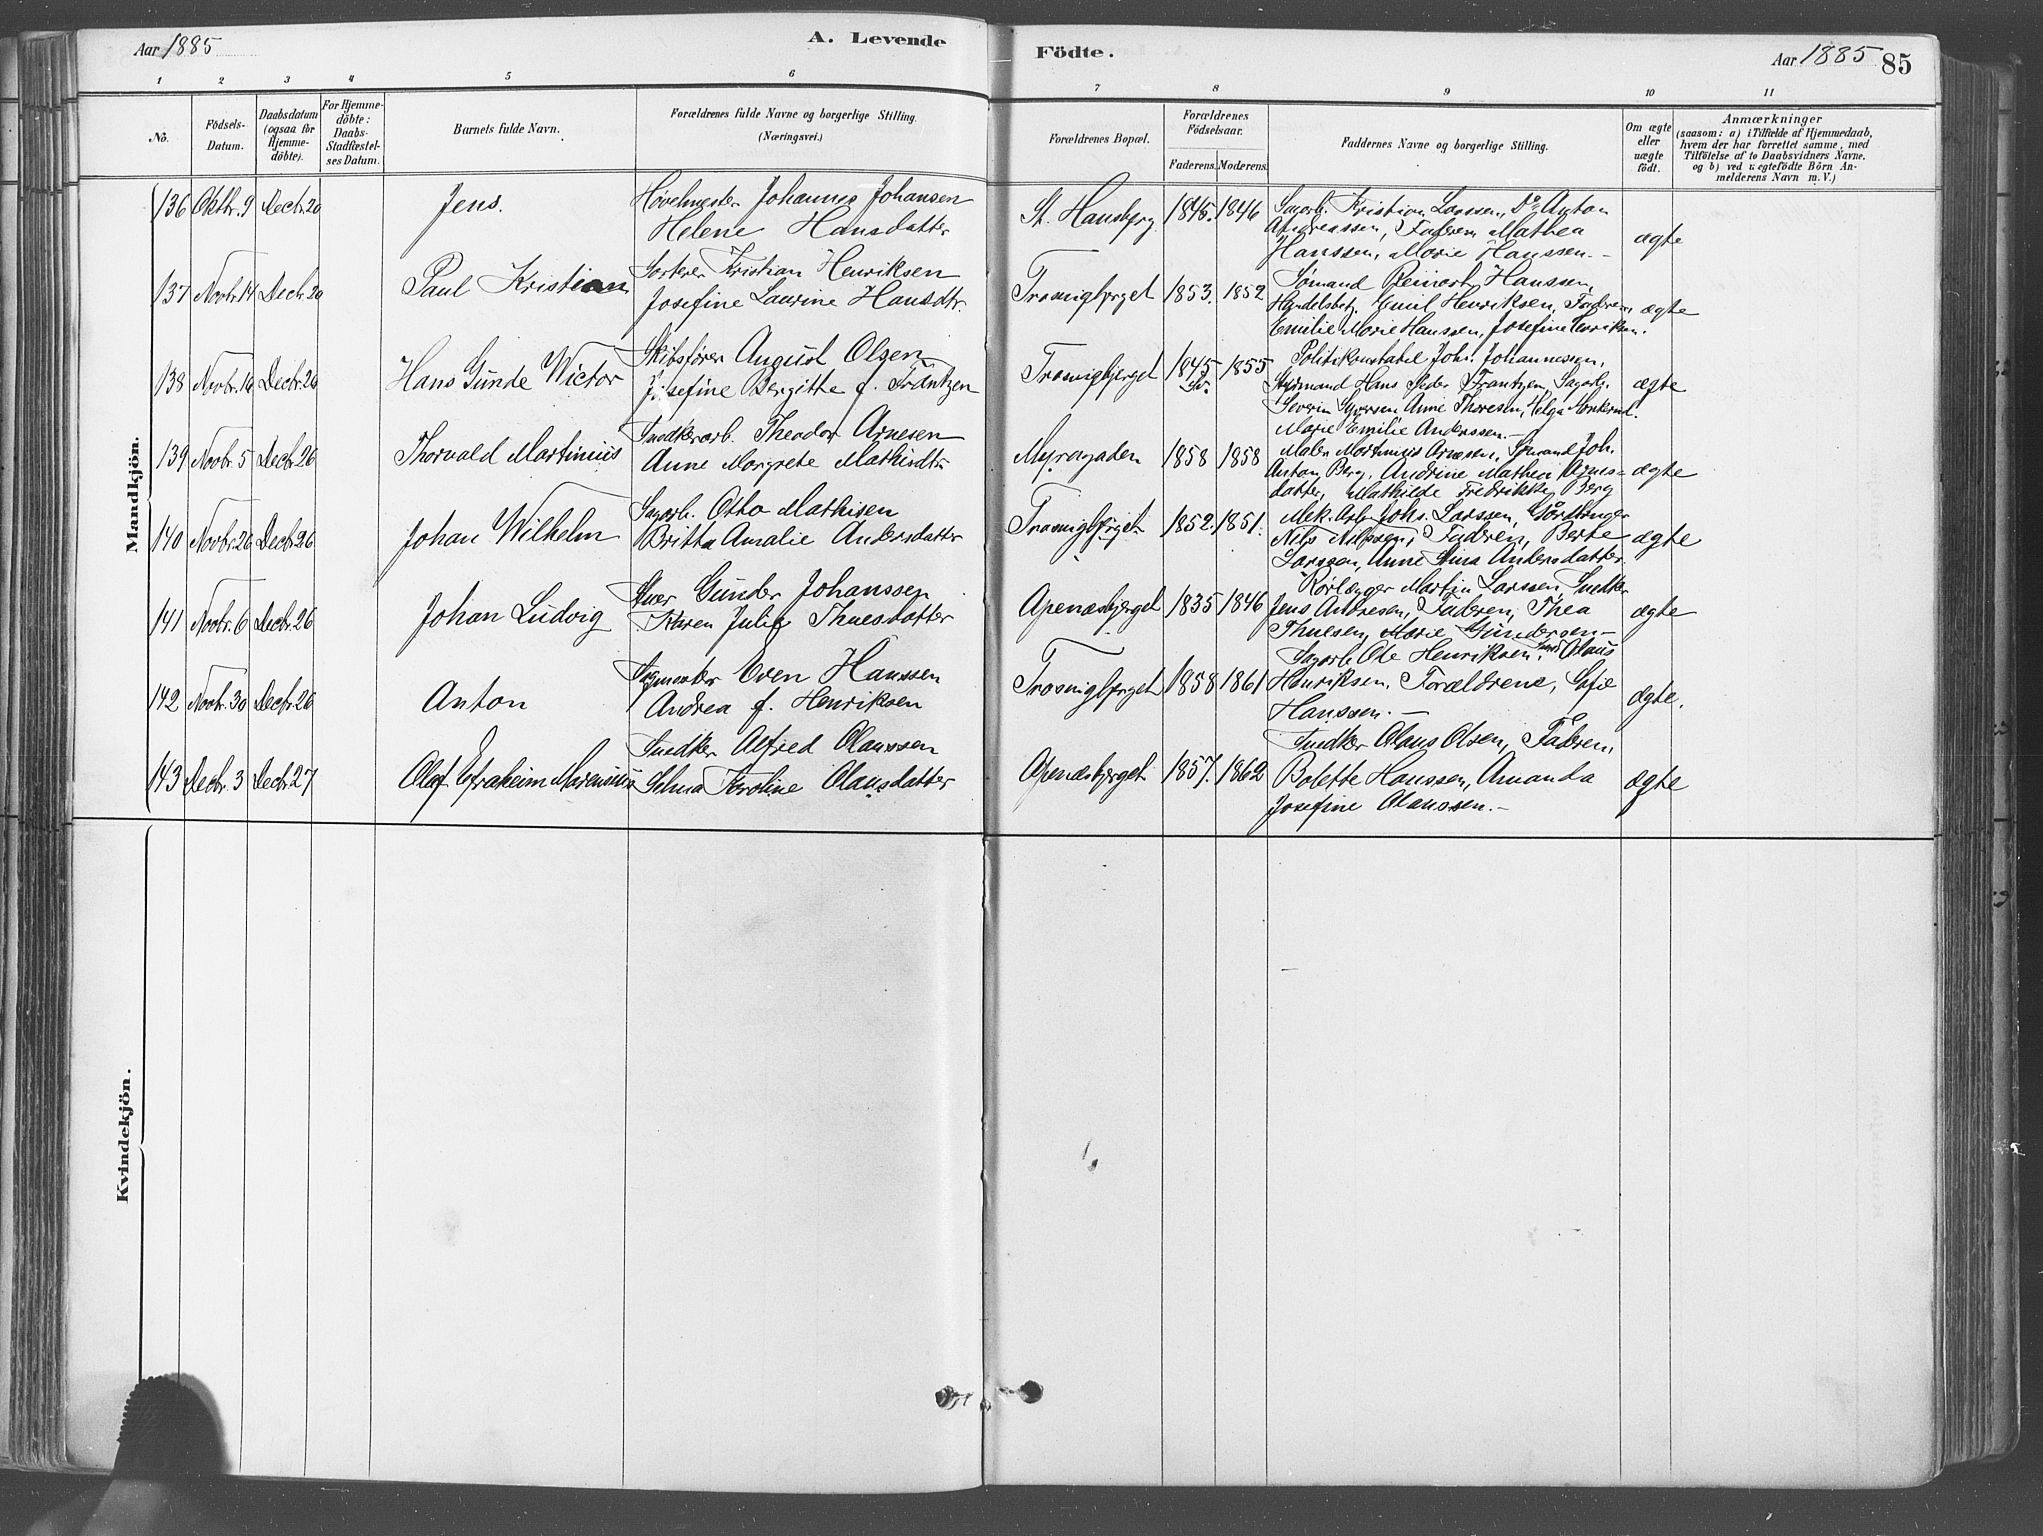 Aar 1885
A. Levende
Födte.
Aar 1885
85
1 2 3 4 5 6 7 8 9 10 11
No.
Födsels-Datum.
Daabsdatum (ogsaa for Hjemme-döbte).
For Hjemme-döbte: Daabs-Stadfæstel-ses Datum.
Barnets fulde Navn.
Forældrenes fulde Navne og borgerlige Stilling.
(Næringsvei.)
Forældrenes Bopæl.
Forældrenes Födselsaar.
Faderens. Moderens.
Faddernes Navne og borgerlige Stilling.
Om ægte eller uægte födt.
Anmærkninger
(saasom: a) i Tilfælde af Hjemmedaab, hvem der har forrettet samme, med Tilföielse af to Daabsvidners Navne, og b) ved uegtefödte Börn An-melderens Navn m. V.)
Mandkjön.
136 Oktbr. 9 Decbr. 20 Jens. Høvelmester Johannes Johansen
Helene Hansdatter
St. Hansbjerg 1845. 1846 Sagarb. Kristian Larssen, Do Anton
Andreassen, Faderen Mathea
Hanssen, Marie Hanssen. – ægte
137 Novbr. 14 Decbr. 20 Paul Kristian Sorterer Kristian Henriksen
Josefine Laurine Hansdtr.
Trosvigbjerget 1853. 1852 Sømand Reinert Hanssen,
Handelsbetj. Emil Henriksen, Faderen, ægte
Emilie Marie Hanssen, Josefine Henriksen.
138 Novbr. 16 Decbr. 26 Hans Gunde Wictor Skibsfører August Olsen
Josefine Bergitte f. Frantzen
Trosvigbjerget 1845 1855 Politikonstabel Johs. Johannessen,
Styrmand Hans Peder Frantzen, Sagarb. ægte
Severin Syversen Anne Thoresen, Helga
Marie Emilie Anderssen. –
139 Novbr. 5 Decbr. 26 Thorvald Martinius Snedkerarb. Theodor Arnesen
Anne Margrete Mathisdtr.
Myragaden 1858 1858 Maler Martinius Arnesen, Sømand Joh.
Anton Berg, Andrine Mathea Arnes= ægte
datter, Mathilde Fredrikke Berg
140 Novbr. 26 Decbr. 26 Johan Wilhelm Sagarb. Otto Mathisen
Britta Amalie Andersdatter
Trosvigbjerget 1852. 1851. Mek. Arb. Johs. Larssen,
Nils Nilssen, Faderen, Berte ægte
Larssen, Anne Stina Andersdatter
141 Novbr. 6 Decbr. 26 Johan Ludvig Gunder Johanssen
Karen Julie Thuesdatter
Apenæsbjerget 1835 1846 Rørlægger Martin Larssen, Snedker
Jens Andresen, Faderen, Thea ægte
Thuesen, Marie Gundersen –
142 Novbr. 30 Decbr. 26 Anton Sagmester Even Hanssen
Andrea f. Henriksen
Trosvigbjerget 1858 1861 Sagarb. Ole Henriksen, Olaus
Henriksen, Forældrene, Sofie ægte.
Hanssen. –
143 Decbr. 3 Decbr. 27 Olaf Efraheim Marensius Snedker Alfred Olaussen
Selma Karoline Olausdatter
Apenæsbjerget 1857. 1862 Snedker Olaus Olsen, Faderen,
Bolette Hanssen, Amanda ægte
Josefine Olaussen. –
Kvindekjön.